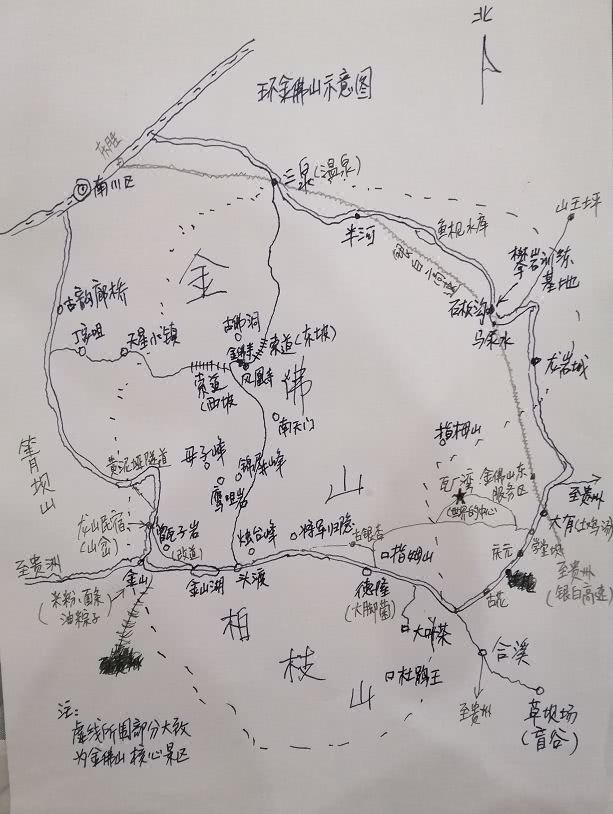 北
环金佛山示意图
南川区
三泉(温泉)
半河
鱼枧水库
山王坪
攀岩训练
基地
石板沟
马来水
龙岩城
古韵廊桥
丁家咀
天星小镇
金
佛
山
古佛洞
金佛寺
索道(东坡)
凤凰寺
索道
(西坡)
南天门
指拇山
瓦厂湾
(世界的中心)
金佛山东
服务区
箐坝山
黄泥垭隧道
母子峰
锦屏峰
鹰咀岩
龙山民宿
(山岔)
甑子岩
(改道)
烛台峰
将军归隐
古银杏
指拇山
至贵州
大有(土鸡汤)
学堂坡
庆元
古花
至贵州
(银白高速)
至贵州
金山
(米粉、面条
油粽子)
金山湖
头渡
德隆
(大脚菌)
大叶茶
杜鹃王
合溪
至贵州
草坝场
(音谷)
柏
枝
山
注:
虚线所围部分大致
为金佛山核心景区